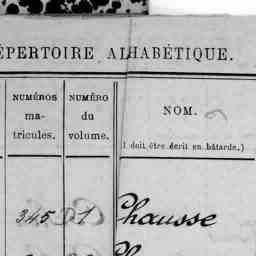 RÉPERTOIRE ALHABÉTIQUE.
NUMÉROS
ma-
tricules.
NUMÉRO
du
volume.
NOM.
doit être écrit en bâtarde.)
345 1 Chausse